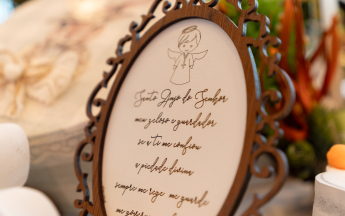 Santo Anjo do Senhor
meu zeloso e guardador
se a ti me confiou
a piedade divina
sempre me rege me guarde
me